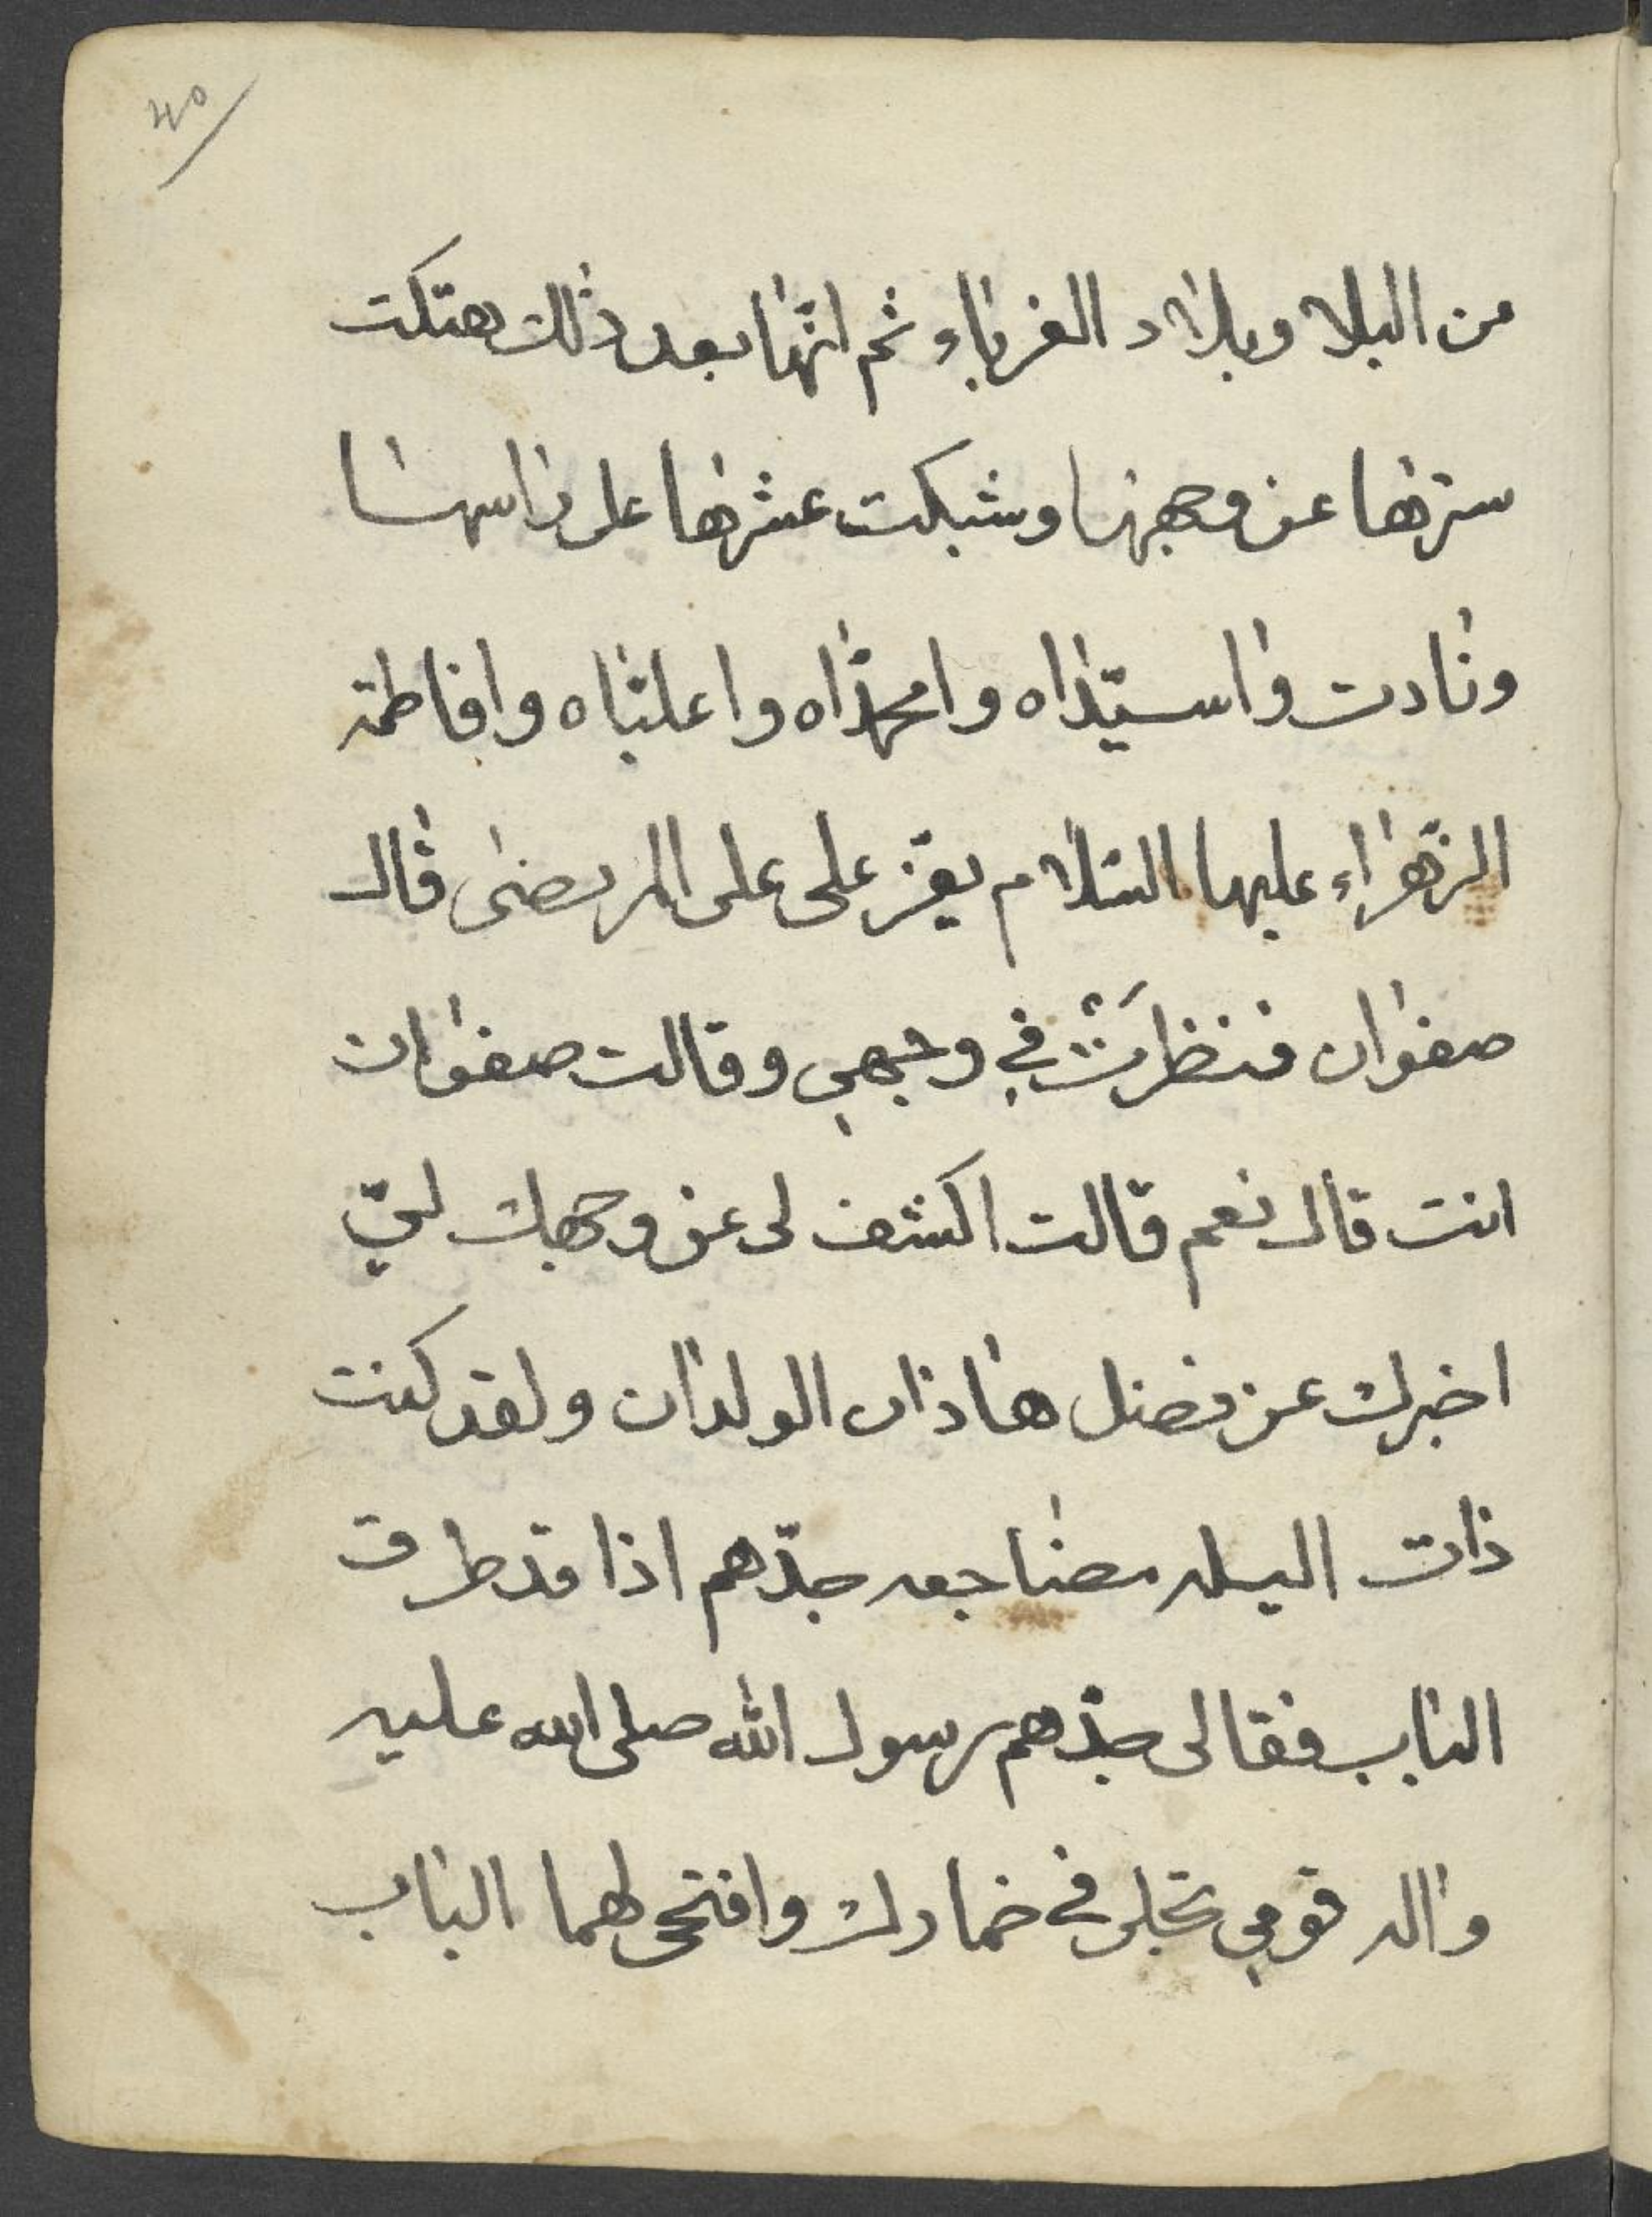 40
من البلا وبلاد الغرباء ثم انها بعد ذلك هتكت
سترها عن وجهها وشبكت عشرها على راسها
ونادت وا سيّداه وا محمّداه وا عليّاه وا فاطمة
الزّهراء عليها السّلام يعزّ على على المرتضى قال
صفوان فنظرَتْ في وجهي وقالت صفوان
انت قال نعم قالت اكشف لى عن وجهك ليّ
اخبرك عن فضل هاذان الولدان ولقد كنت
ذات اليله مضاجعه جدّهم اذا قد طرق
الباب فقالى جدّهم رسول الله صلى الله عليه
واله قومي تجلى في خمارك وافتحى لهما الباب